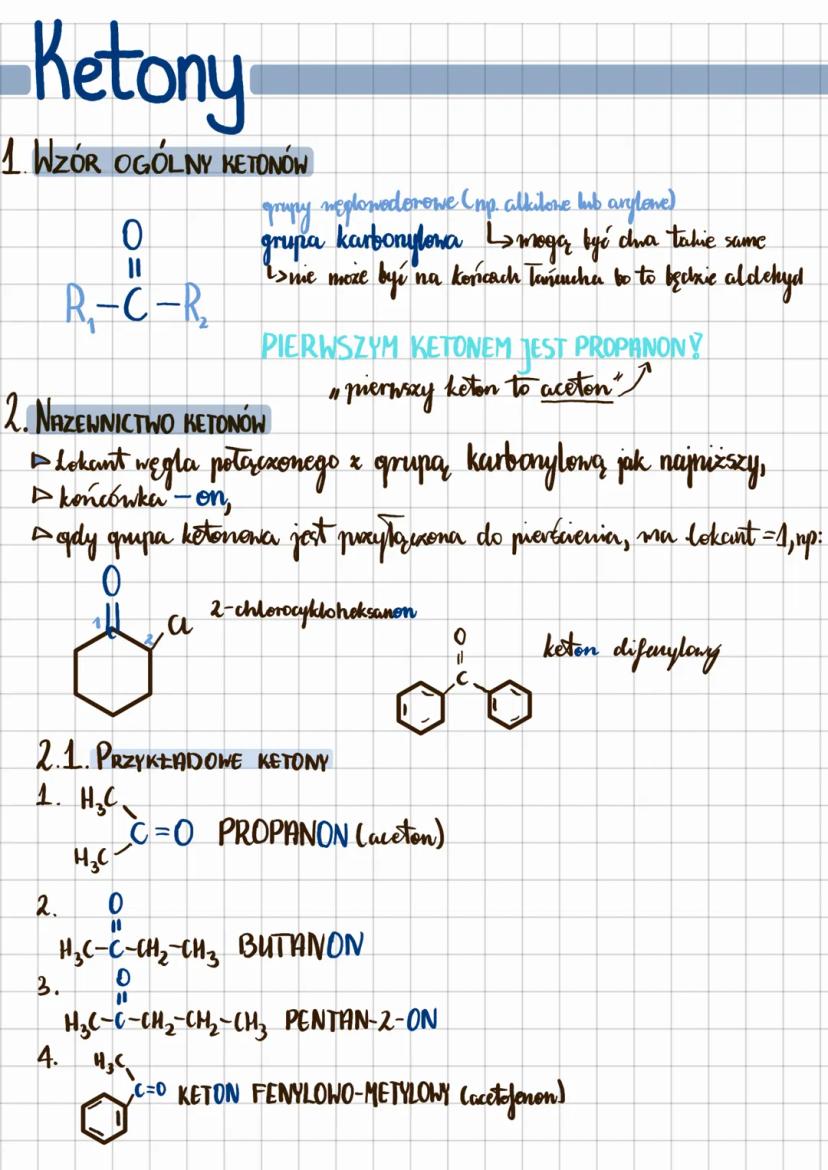 Ketony
1. WZÓR OGÓLNY KETONÓW
grupy węglowodorowe (np. alkilowe lub arylowe)
grupa karbonylowa ↳ mogą być dwa takie same
↳ nie może być na końcach łańcucha bo to będzie aldehyd
O
||
R₁–C–R₂
PIERWSZYM KETONEM JEST PROPANON!
"pierwszy keton to aceton"
2. NAZEWNICTWO KETONÓW
▷ lokant węgla połączonego z grupą karbonylową jak najniższy,
▷ końcówka –on,
▷ gdy grupa ketonowa jest przyłączona do pierścienia, ma lokant =1, np:
O
1
2
Cl
2-chlorocykloheksanon
O
||
C
keton difenylowy
2.1. PRZYKŁADOWE KETONY
1. H₃C
C=O PROPANON (aceton)
H₃C
2. O
||
H₃C–C–CH₂–CH₃ BUTANON
3. O
||
H₃C–C–CH₂–CH₂–CH₃ PENTAN-2-ON
4. H₃C
C=O KETON FENYLOWO-METYLOWY (acetofenon)